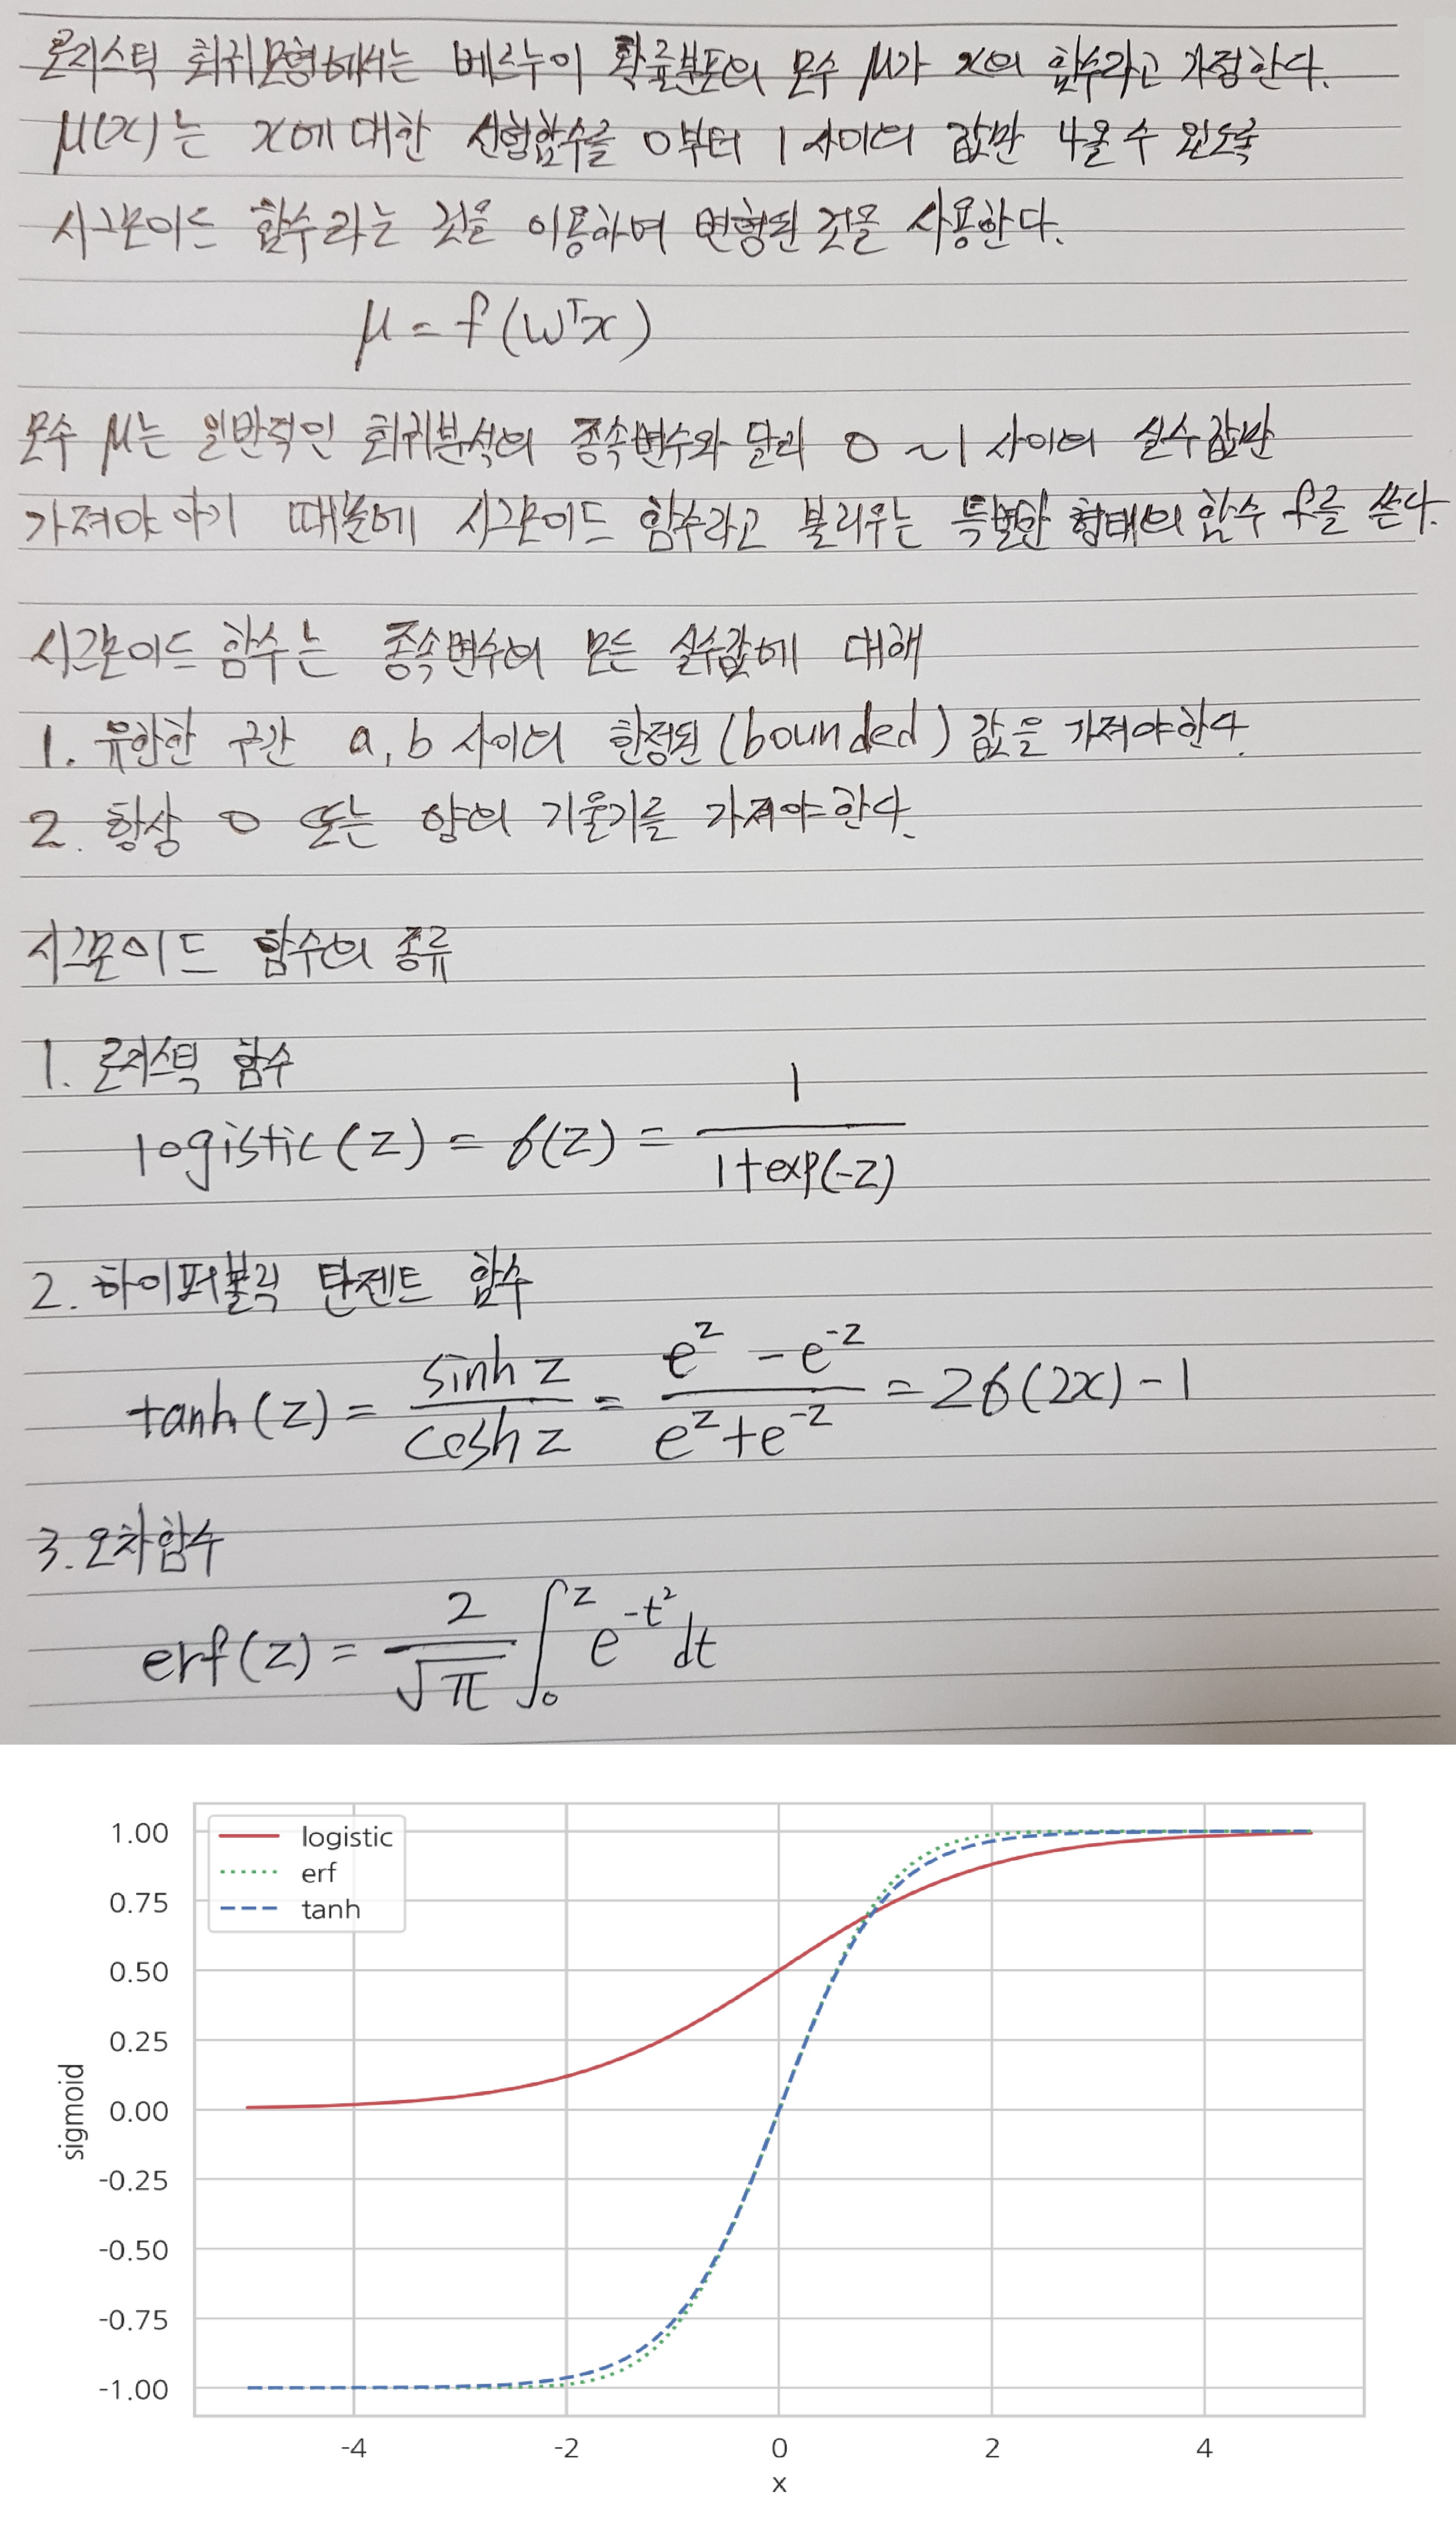 로지스틱 회귀모형에서는 베르누이 확률분포의 모수 μ가 x의 함수라고 가정한다.
μ(x)는 x에 대한 선형함수를 0부터 1 사이의 값만 나올 수 있도록
시그모이드 함수라는 것을 이용하여 변형된 것을 사용한다.
μ = f(wᵀx)
모수 μ는 일반적인 회귀분석의 종속변수와 달리 0 ~ 1 사이의 실수값만
가져야 하기 때문에 시그모이드 함수라고 불리우는 특별한 형태의 함수 f를 쓴다.
시그모이드 함수는 종속변수의 모든 실수값에 대해
1. 유한한 구간 a, b 사이의 한정된 (bounded) 값을 가져야한다.
2. 항상 0 또는 양의 기울기를 가져야한다.
시그모이드 함수의 종류
1. 로지스틱 함수
logistic(z) = σ(z) = 1 / (1+exp(-z))
2. 하이퍼볼릭 탄젠트 함수
tanh(z) = sinh z / cosh z = (e^z - e^-z) / (e^z + e^-z) = 2σ(2x) - 1
3. 오차함수
erf(z) = 2/√π ∫₀^z e^-t² dt
logistic
erf
tanh
1.00
0.75
0.50
0.25
0.00
-0.25
-0.50
-0.75
-1.00
sigmoid
-4 -2 0 2 4
x